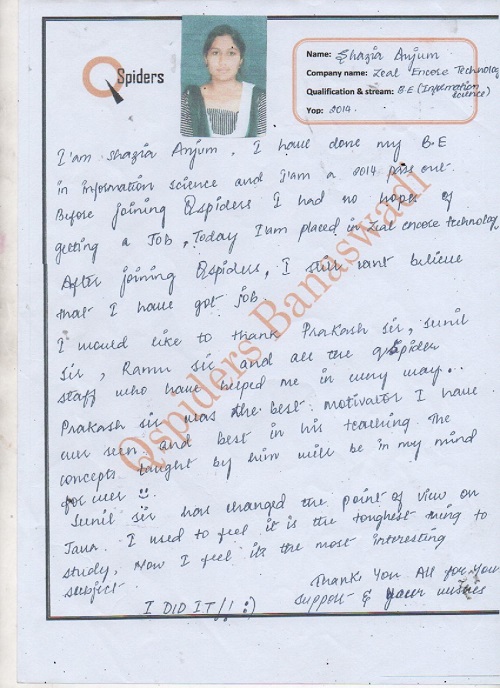 QSpiders
Name: Shazia Anjum
Company name: Zeal Encose Technology
Qualification & stream: B.E (Information science)
Yop: 2014.
I'am Shazia Anjum. I have done my B.E
in information science and I'am a 2014 pass out.
Before joining Qspiders I had no hopes of
getting a Job, Today I am placed in Zeal encose technology
After joining Qspiders, I still cant believe
that I have got job.
I would like to thank Prakash sir, Sunil
Sir, Ramu sir and all the qspider
staff who have helped me in every way..
Prakash sir was the best motivator I have
ever seen, and best in his teaching. The
concepts taught by him will be in my mind
for ever :)
Sunil sir has changed the point of view on
Java. I used to feel it is the toughest thing to
study, Now I feel its the most interesting
subject.
Thank You All for your
support & your wishes
I DID IT!! :)
Qspiders Banaswadi